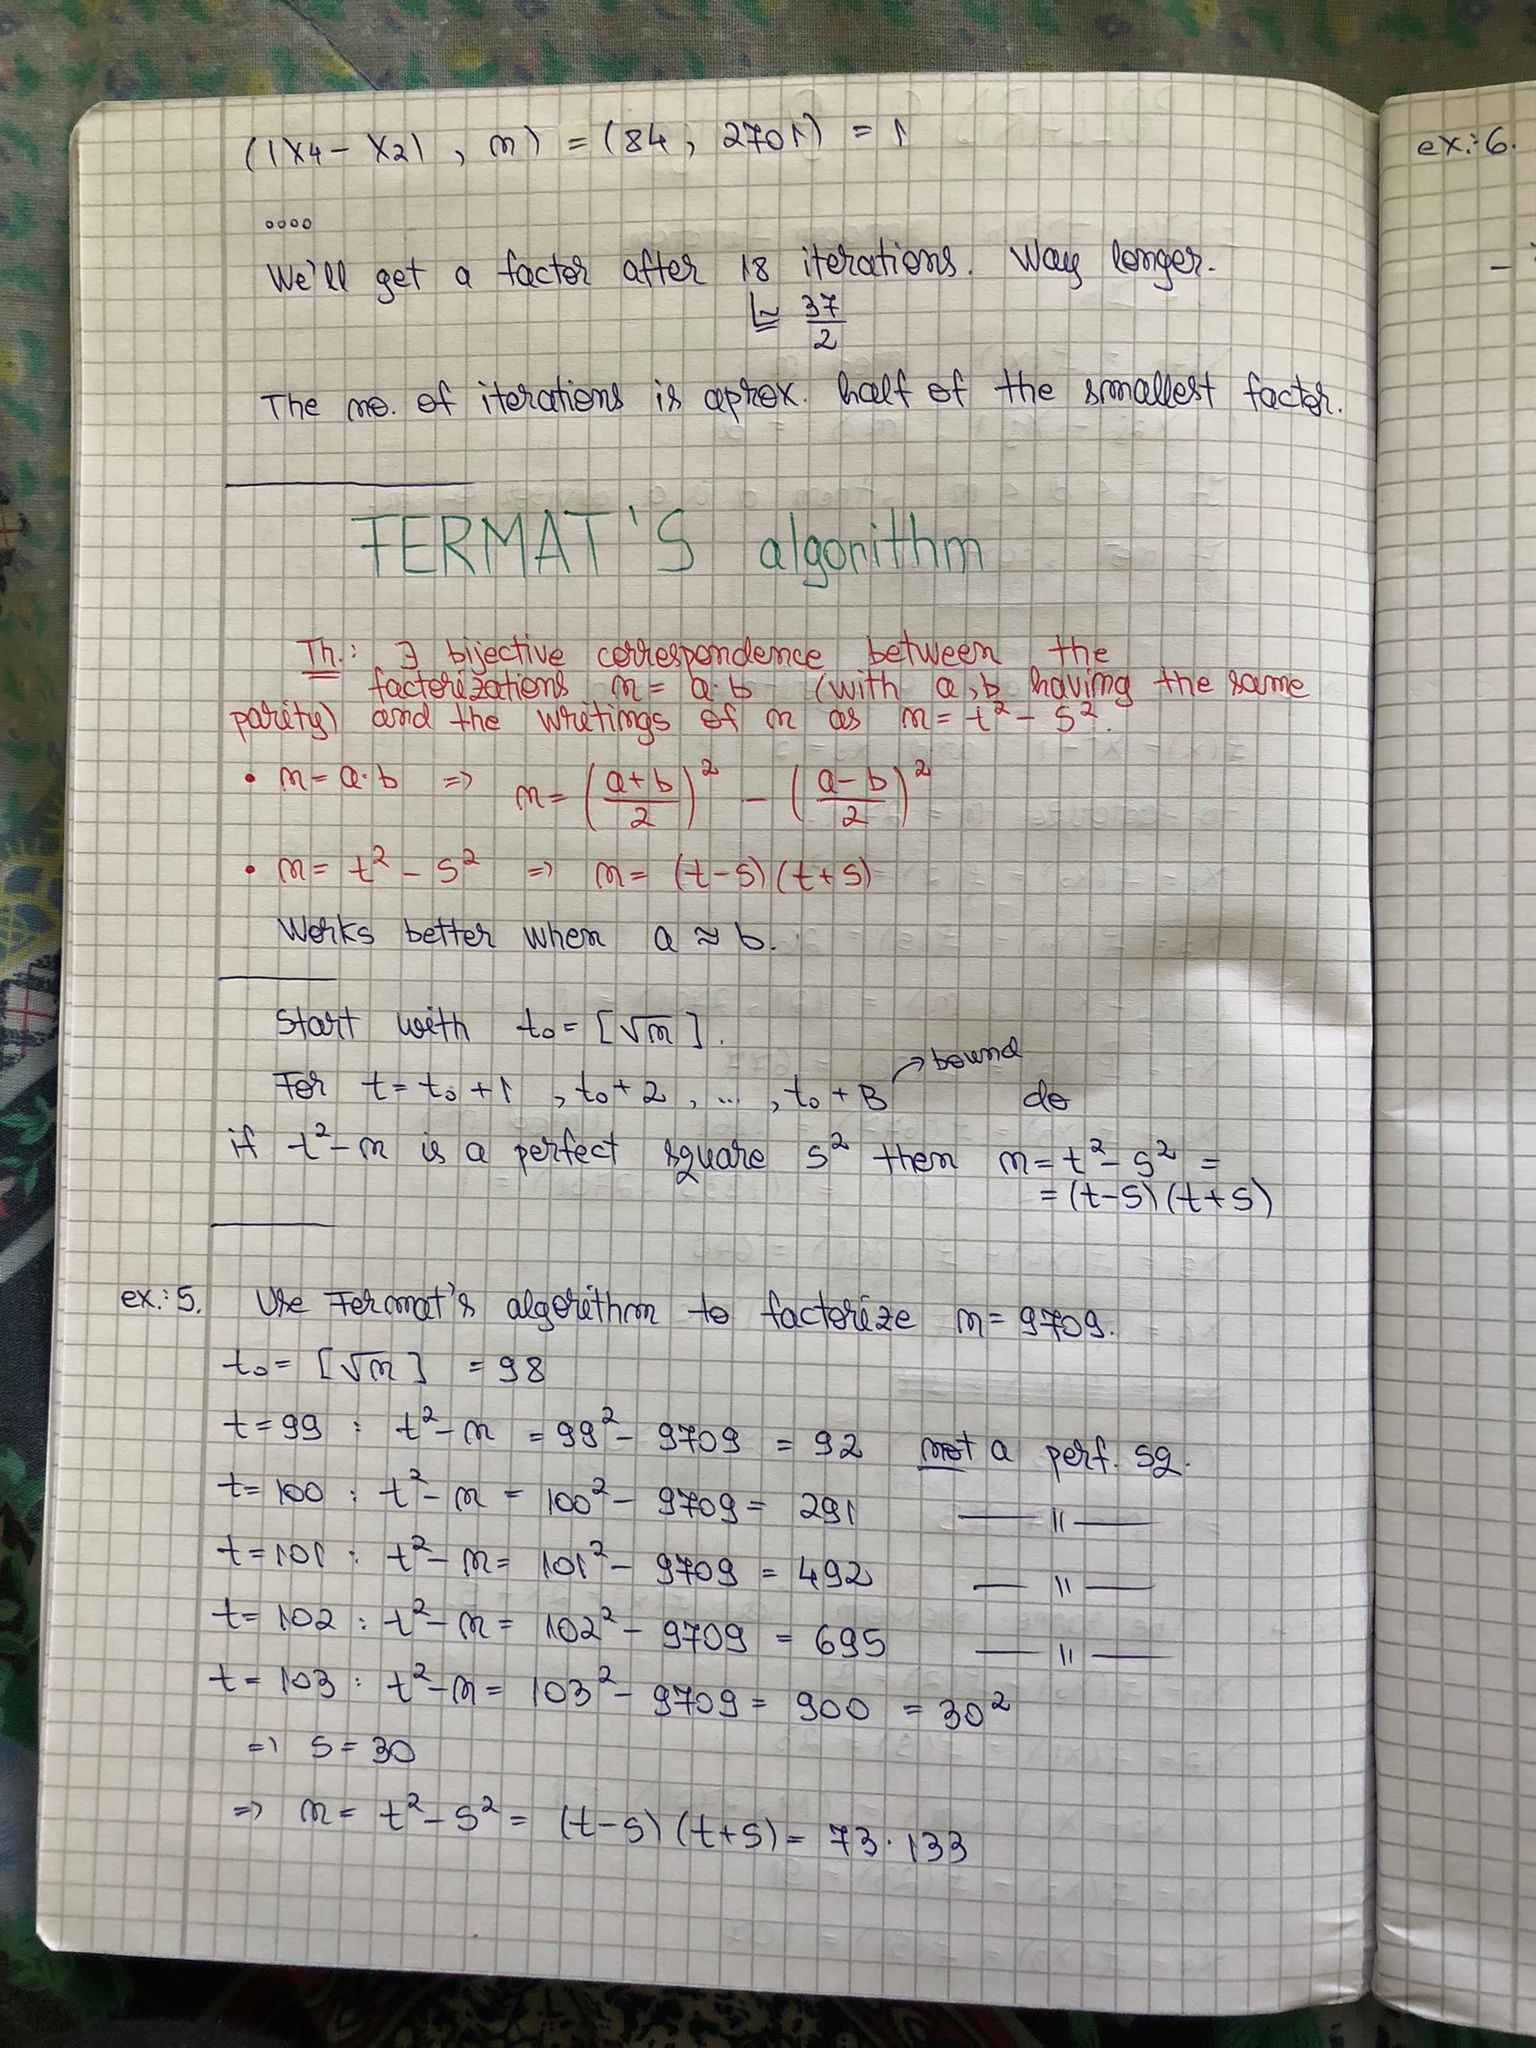 (|x4 - x2|, n) = (84, 2701) = 1
ex.: 6.
....
We'll get a factor after 18 iterations. Way longer.
≃ 37/2
The no. of iterations is aprox. half of the smallest factor.
FERMAT'S algorithm
Th.: ∃ bijective correspondence between the
factorizations n = a·b (with a, b having the same
parity) and the writings of n as n = t² - s².
• n = a·b => n = ((a+b)/2)² - ((a-b)/2)²
• n = t² - s² => n = (t-s)(t+s)
Works better when a ≈ b.
Start with t₀ = [√n].
For t = t₀+1, t₀+2, ..., t₀+B → bound do
if t²-n is a perfect square s² then n = t²-s² =
= (t-s)(t+s)
ex.: 5. Use Fermat's algorithm to factorize n = 9709.
t₀ = [√n] = 98
t = 99 : t²-n = 99² - 9709 = 92 not a perf. sq.
t = 100 : t²-n = 100² - 9709 = 291 — " —
t = 101 : t²-n = 101² - 9709 = 492 — " —
t = 102 : t²-n = 102² - 9709 = 695 — " —
t = 103 : t²-n = 103² - 9709 = 900 = 30²
=> s = 30
=> n = t² - s² = (t-s)(t+s) = 73·133